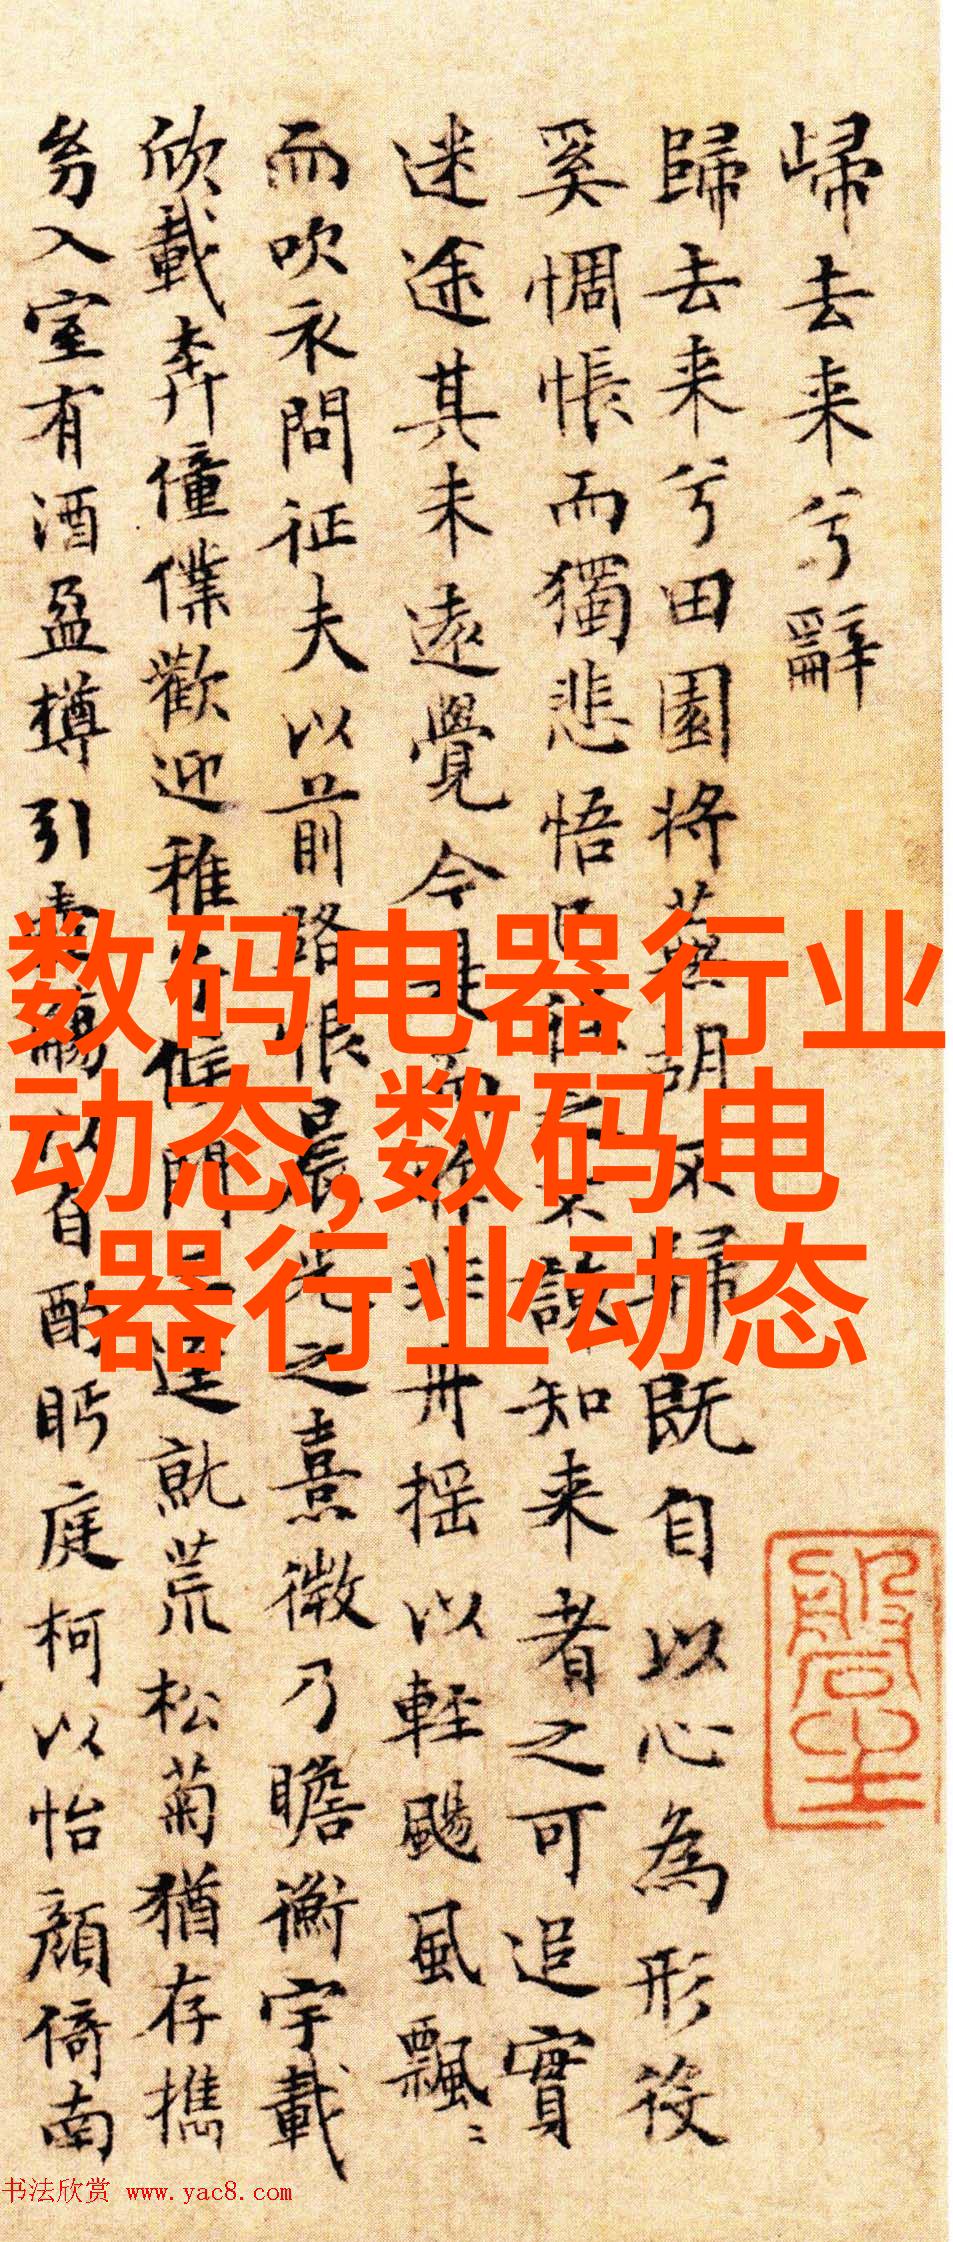 歸去来兮辭
歸去来兮田園将蕪胡不歸既自以心為形役
奚惆悵而獨悲悟已往之不諫知来者之可追實
迷途其未遠覺今是而昨非舟揺以輕颺風飄〻
而吹衣問征夫以前路恨晨光之熹微乃瞻衡宇載
欣載奔僮僕歡迎稚子候門三逕就荒松菊猶存攜
幼入室有酒盈樽引壺觴以自酌眄庭柯以怡顔倚南
数码电器行业
动态,数码电
器行业动态
书法欣赏 www.yac8.com